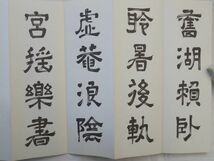 舊湖賴卧
聆暑後軌
虛菴浪陰
宮搖樂書